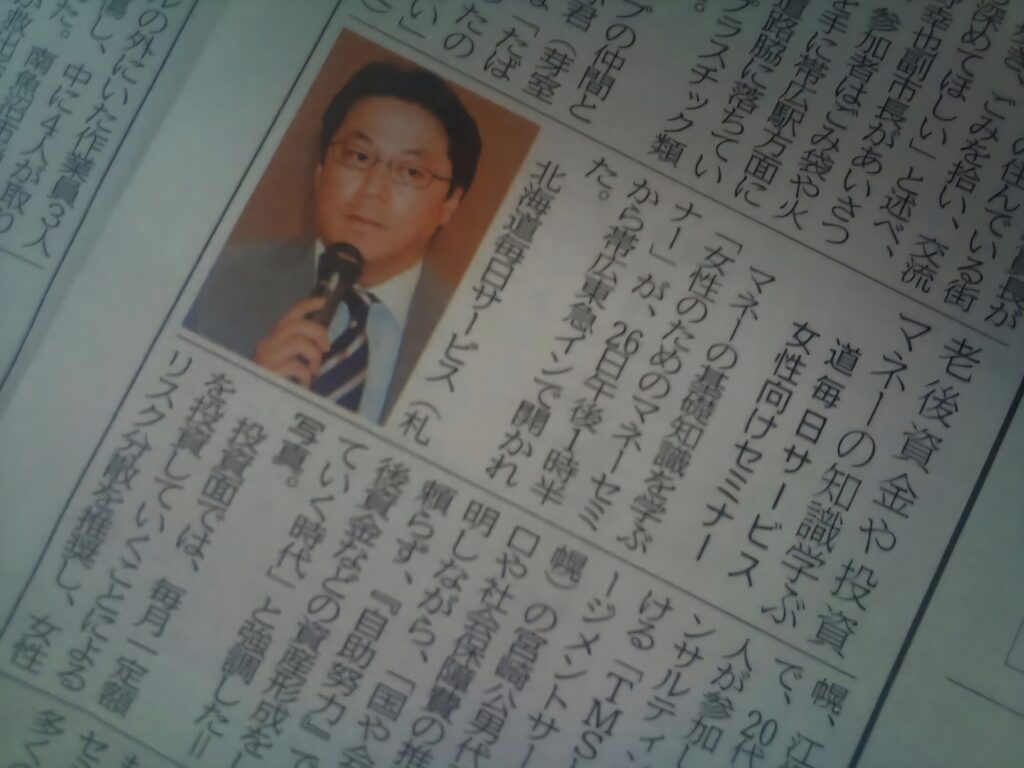 の住んでいる街
ごみを拾い、交流
深めてほしい」と述べ、
幸也副市長があいさつ
参加者はごみ袋や火
を手に帯広駅方面に
道路脇に落ちてい
プラスチック類
る。
ブの仲間と
君(芽室
は「たば
したの
しい」
老後資金や投資
マネーの知識学ぶ
道毎日サービス
女性向けセミナー
マネーの基礎知識を学ぶ
「女性のためのマネーセミ
ナー」が、26日午後1時半
から帯広東急インで開かれ
た。
北海道毎日サービス(札
幌、江
で、20代
人が参加し
ンサルティ
ける「TMS
ージメントサー
幌)の宮崎公男代
口や社会保障費の推
明しながら、「国や会
頼らず、『自助努力』で
後資金などの資産形成を
ていく時代」と強調した=
写真。
投資面では、毎月一定額
を投資していくことによる
リスク分散を推奨し、女性
セミ
多く
ルの外にいた作業員3人
中に4人が取り
た。南魚沼市